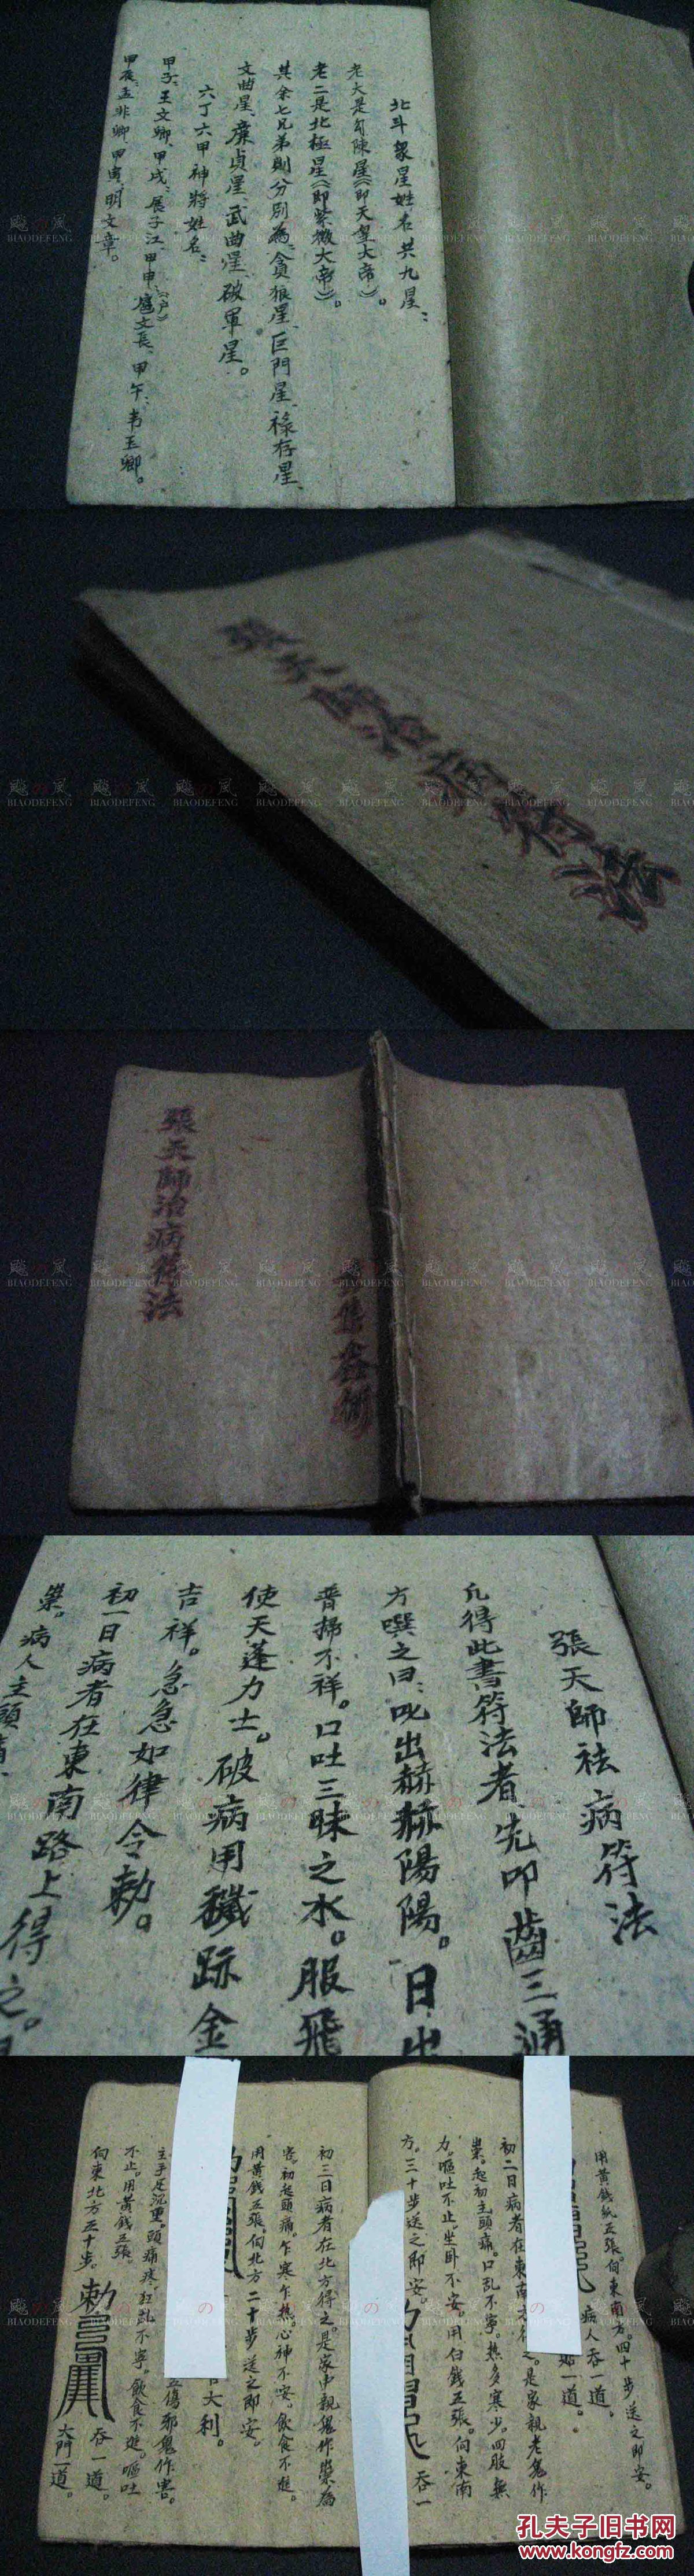 北斗衆星姓名共九星：
老大是勾陳星（即天皇大帝）。
老二是北極星（即紫微大帝）。
其余七兄弟則分别為、貪狼星、巨門星、祿存星、
文曲星、廉貞星、武曲星、破軍星。
六丁六甲神將姓名：
甲子：王文卿、甲戌、展子江甲申、扈文長、甲午：韦玉卿。
甲辰：孟非卿甲寅、明文章。
張天師治病符法
張天師治病符法
張天師祛病符法
凡得此書符法者、先叩齒三通
方噀之曰：吪出赫赫陽陽。日出
普掃不祥。口吐三昧之水。服飛
使天蓬力士。破病用穢跡金
吉祥。急急如律令勅。
初一日病者在東南路上得之。
祟。病人主頭痛、
用黄錢紙五張。向東南方。四十步送之即安。
病人吞一道。
一道。
初二日病者在東南方
之。是家親老鬼作
祟。起初主頭痛。口乱不寧。热多寒少。四肢無
力。嘔吐不止。坐卧不安、用白錢五張。向東南
方。三十步送之即安。
吞一
初三日病者在北方得之。是家中親鬼作祟為
害。初起頭痛。乍寒乍热心神不安。飲食不進。
用黄錢五張。向北方二十步送之即安。
大利。
傷邪鬼作害。
主手足沉重。頭痛疼。狂乱不寧。飲食不進。嘔吐
不止。用黄錢五張。
向東北方五十步。
勅
吞一道。
大門一道。
BIAODEFENG
孔夫子旧书网
www.kongfz.com